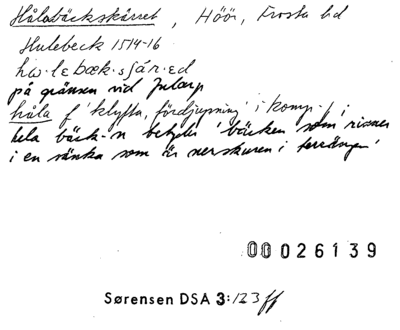 Hålabäckskärret, Höör, Frosta hd
Hulebeck 1514-16
hω·lε bæk·sʃár·ed
på gränsen vid Jularp
håla f 'klyfta, fördjupning' i komp. i
hela bäck-n betyder 'bäcken som rinner
i en sänka som är nerskuren i terrängen'
00026139
Sørensen DSA 3:123 ff